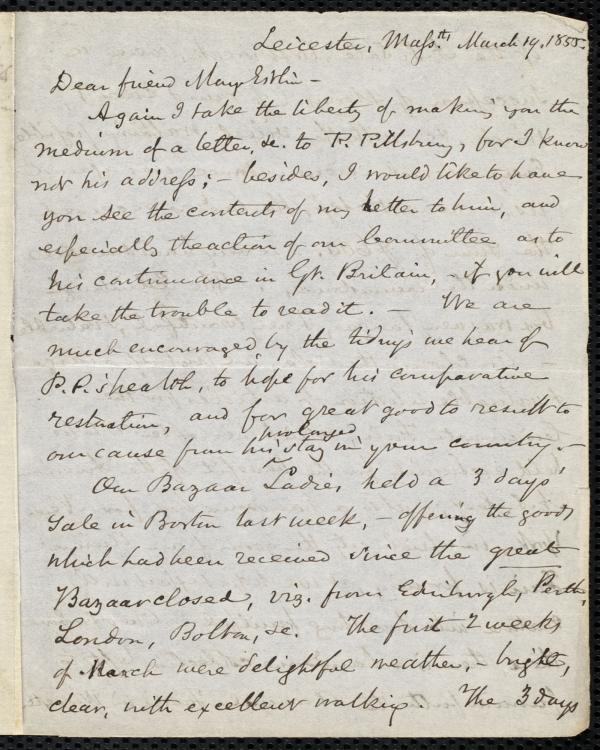 Leicester, Mass.ths March 19, 1855.
Dear friend Mary Estlin –
Again I take the liberty of making you the
medium of a letter, &c. to P. Pillsbury, for I know
not his address; – besides, I would like to have
you see the contents of my letter to him, and
especially the action of our Committee as to
his continuance in Gt. Britain, – if you will
take the trouble to read it. – We are
much encouraged by the tidings we hear of
P. P.'s health, to hope for his comparative
restoration, and for great good to result to
our cause from his prolonged stay in your country. –
Our Bazaar Ladies held a 3 days'
sale in Boston last week, – offering the goods
which had been received since the great
Bazaar closed, viz. from Edinburgh, Perth,
London, Bolton, &c. The first 2 weeks
of March were delightful weather, – bright,
clear, with excellent walking. The 3 days